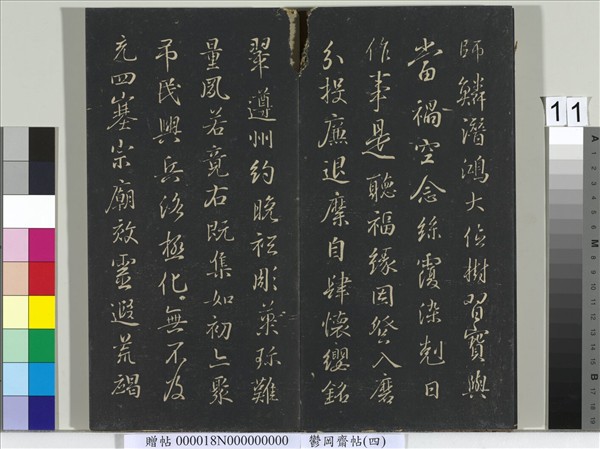 師鱗潛鴻大位樹習寶與
當禍空念絲覆染尅日
作事是聽福緣因登入磨
分投廉退縻自肆懷纓銘
翠遵州約晚祗彫藥殊難
量夙若竟右既集如初亡聚
弔民興兵洛極化無不及
充四塞宗廟效靈遐荒謁
11
贈帖 000018N000000000 鬱岡齋帖(四)